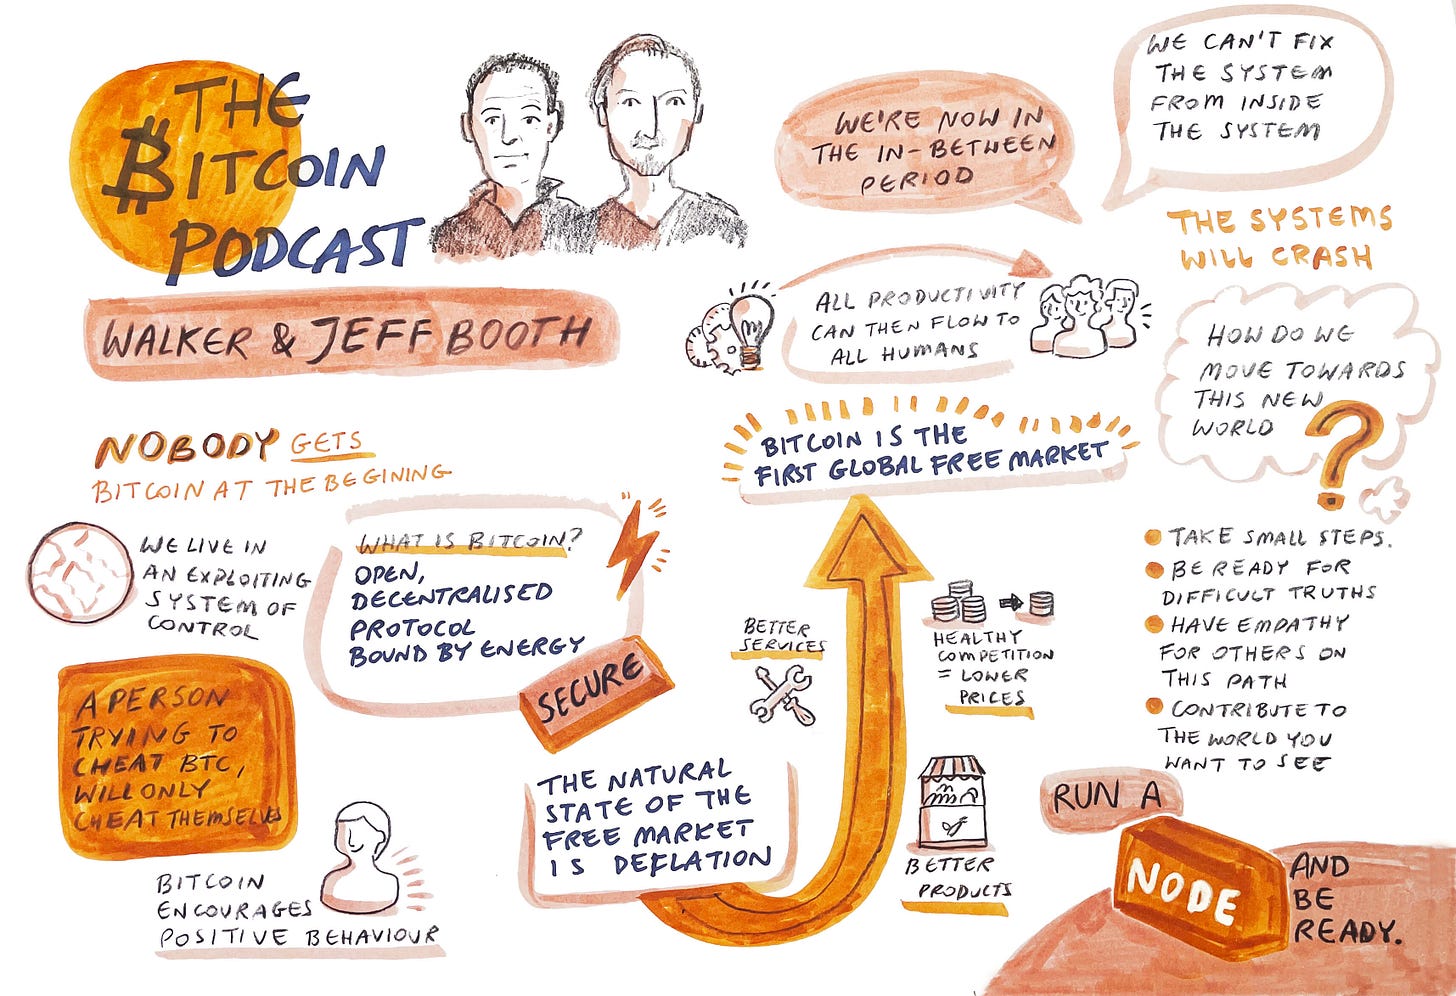 THE
BITCOIN
PODCAST
WALKER & JEFF BOOTH
NOBODY GETS
BITCOIN AT THE BEGINING
WE LIVE IN
AN EXPLOITING
SYSTEM OF
CONTROL
WHAT IS BITCOIN?
OPEN,
DECENTRALISED
PROTOCOL
BOUND BY ENERGY
SECURE
A PERSON
TRYING TO
CHEAT BTC,
WILL ONLY
CHEAT THEMSELVES
BITCOIN
ENCOURAGES
POSITIVE BEHAVIOUR
THE NATURAL
STATE OF THE
FREE MARKET
IS DEFLATION
BETTER
SERVICES
HEALTHY
COMPETITION
= LOWER
PRICES
BETTER
PRODUCTS
BITCOIN IS THE
FIRST GLOBAL FREE MARKET
ALL PRODUCTIVITY
CAN THEN FLOW TO
ALL HUMANS
WE'RE NOW IN
THE IN-BETWEEN
PERIOD
WE CAN'T FIX
THE SYSTEM
FROM INSIDE
THE SYSTEM
THE SYSTEMS
WILL CRASH
HOW DO WE
MOVE TOWARDS
THIS NEW
WORLD
?
TAKE SMALL STEPS.
BE READY FOR
DIFFICULT TRUTHS
HAVE EMPATHY
FOR OTHERS ON
THIS PATH
CONTRIBUTE TO
THE WORLD YOU
WANT TO SEE
RUN A
NODE
AND
BE
READY.